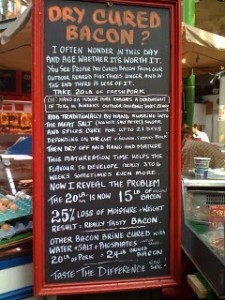 DRY CURED
BACON?
I OFTEN WONDER IN THIS DAY
AND AGE WHETHER ITS WORTH IT.
YOU SEE PROPER DRY CURED BACON FROM OUR
OUTDOOR REARED PIGS TAKES LONGER, AND IN
THE END THERE IS LESS OF IT.
TAKE 20LB OF FRESH PORK
ADD TRADITIONALLY BY HAND, RUBBING INTO
THE MEAT SALT
AND SPICES, CURE FOR UP TO 21 DAYS
DEPENDING ON THE CUT
THEN DRY OFF AND HANG AND MATURE
THIS MATUREATION TIME HELPS THE
FLAVOUR TO DEVELOPE
WEEKS SOMETIMES EVEN MORE.
NOW I REVEAL THE PROBLEM
THE 20LB IS NOW 15LB OF BACON
25% LOSS OF MOISTURE + WEIGHT
RESULT: REALLY TASTY BACON
OTHER BACON BRINE CURED WITH
WATER + SALT + PHOSPHATES
20LB OF PORK = 24LB BRINER BACON
TASTE THE DIFFERENCE